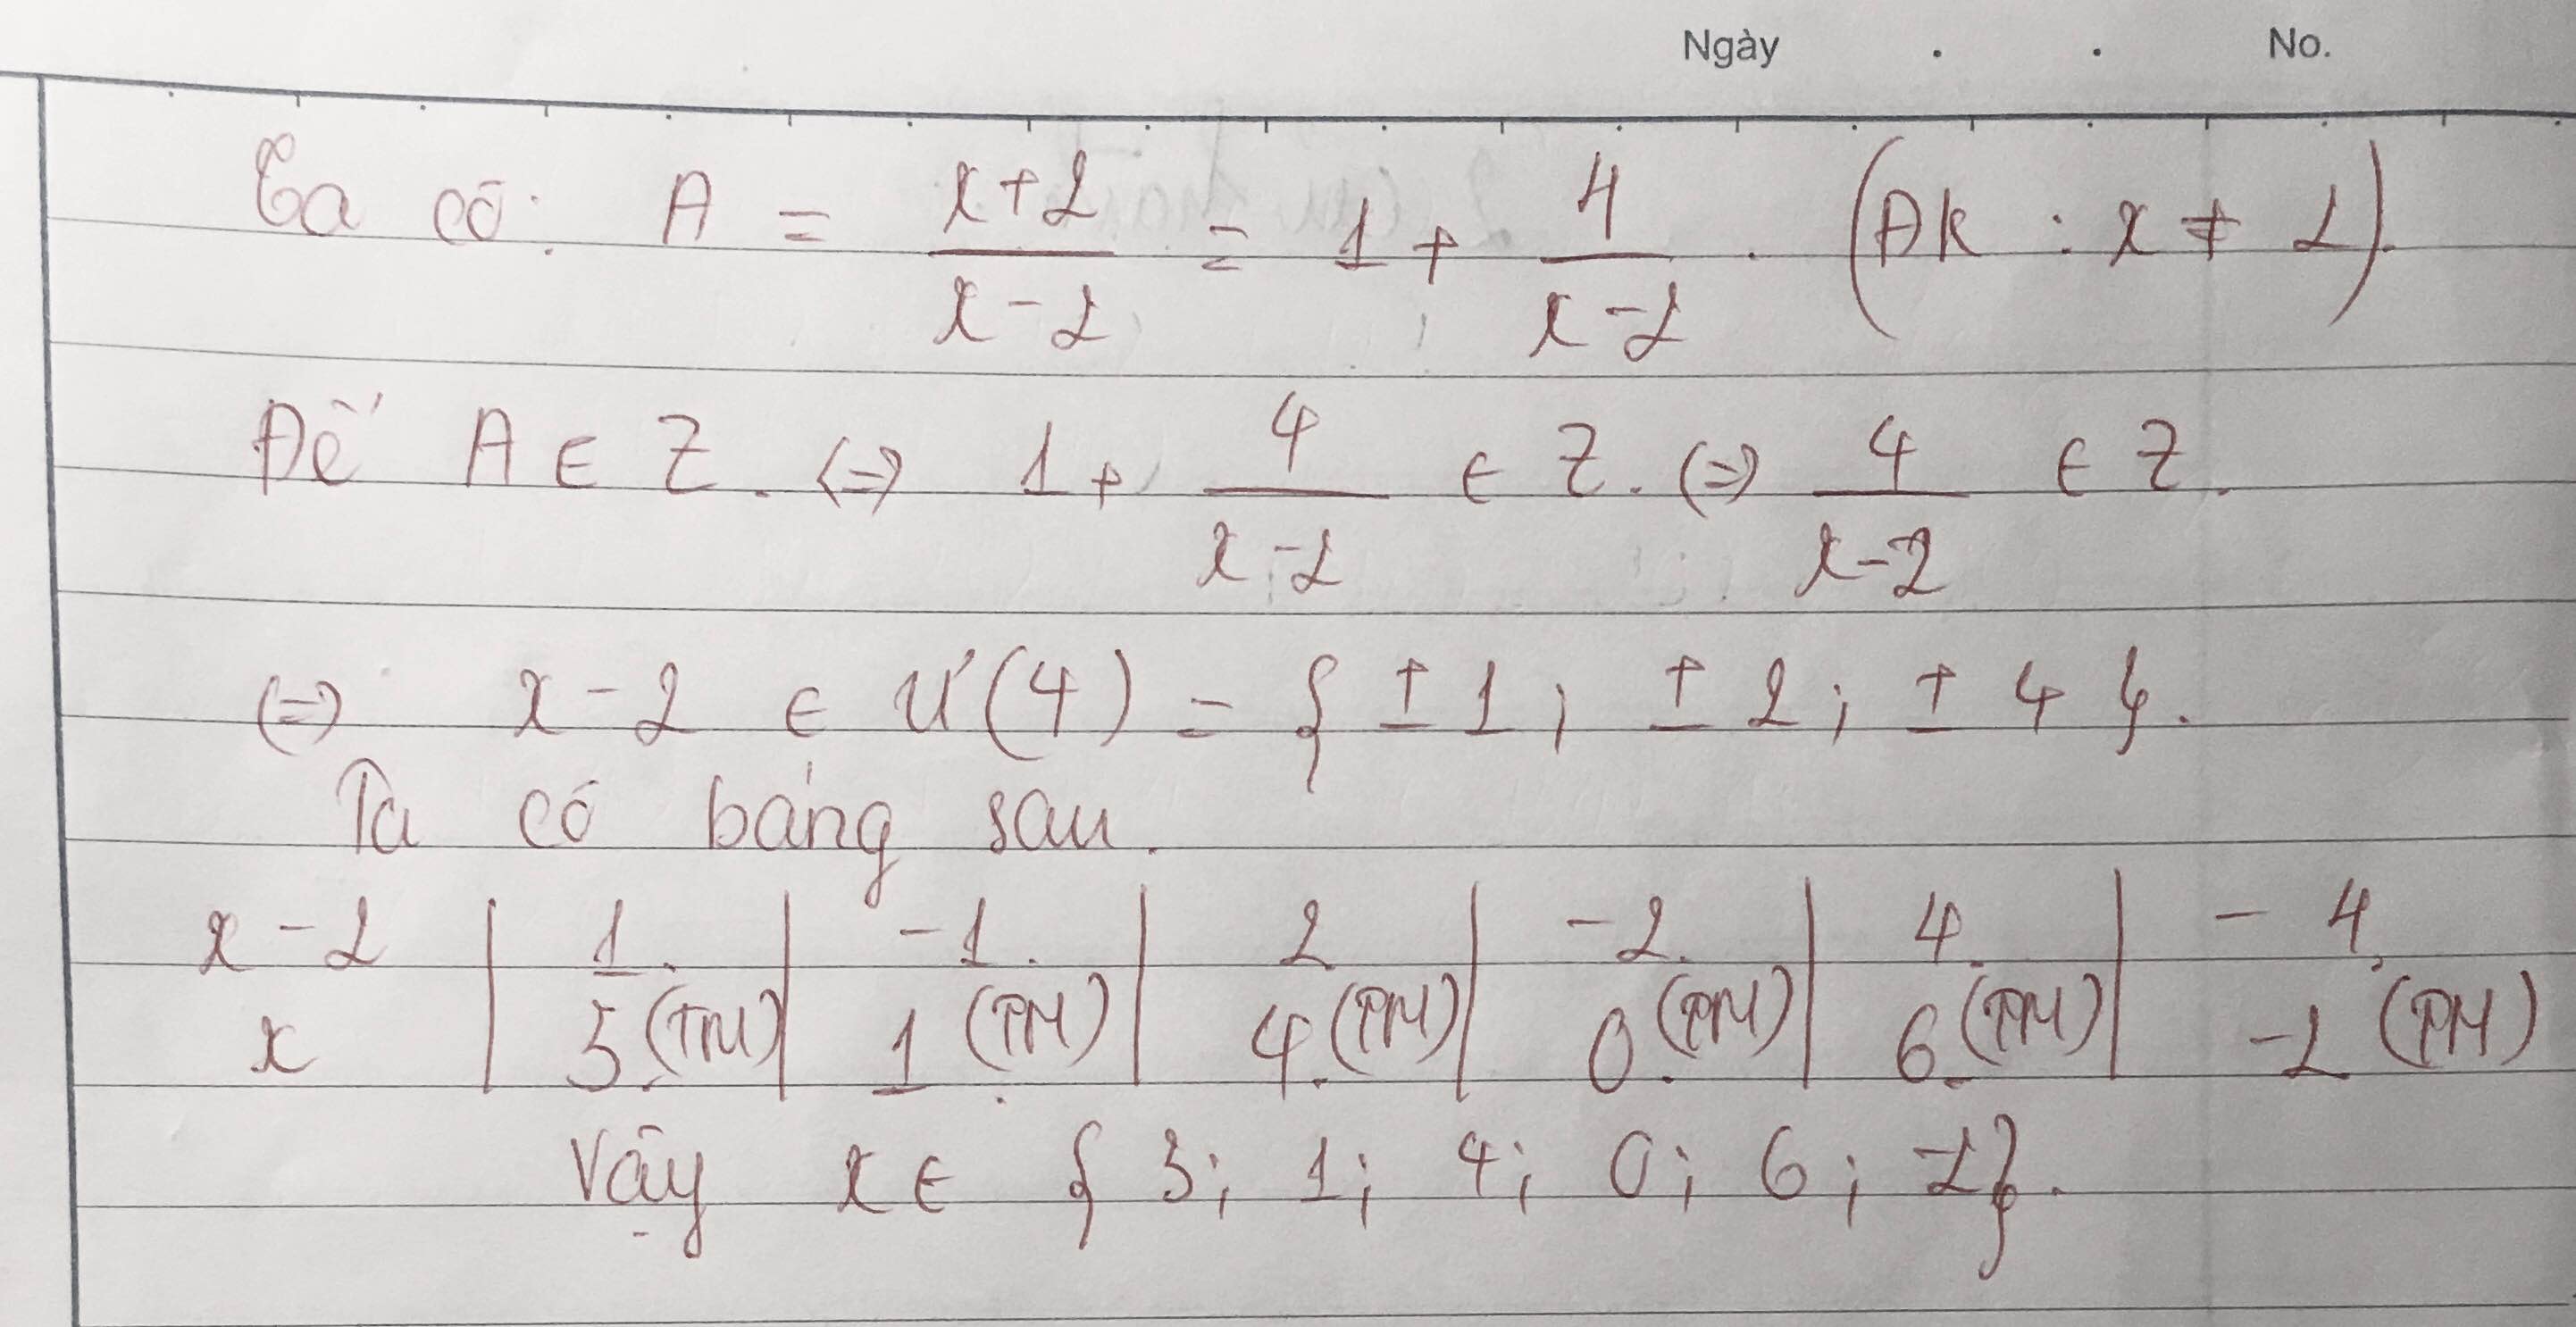 Ngày . . No.
Ta có: A = \frac{x+2}{x-2} = 1 + \frac{4}{x-2} . (ĐK : x ≠ 2).
Để A ∈ Z. <=> 1 + \frac{4}{x-2} ∈ Z. <=> \frac{4}{x-2} ∈ Z.
<=> x - 2 ∈ Ư(4) = { ± 1 ; ± 2 ; ± 4 }.
Ta có bảng sau.
x - 2 | 1. | -1. | 2. | -2. | 4. | - 4.
x | 3.(TM) | 1.(TM) | 4.(TM) | 0.(TM) | 6.(TM) | -2 (TM)
Vậy x ∈ { 3; 1; 4; 0; 6; -2}.